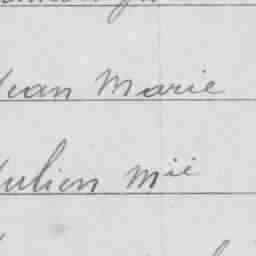 Jean Marie
Julien Mie